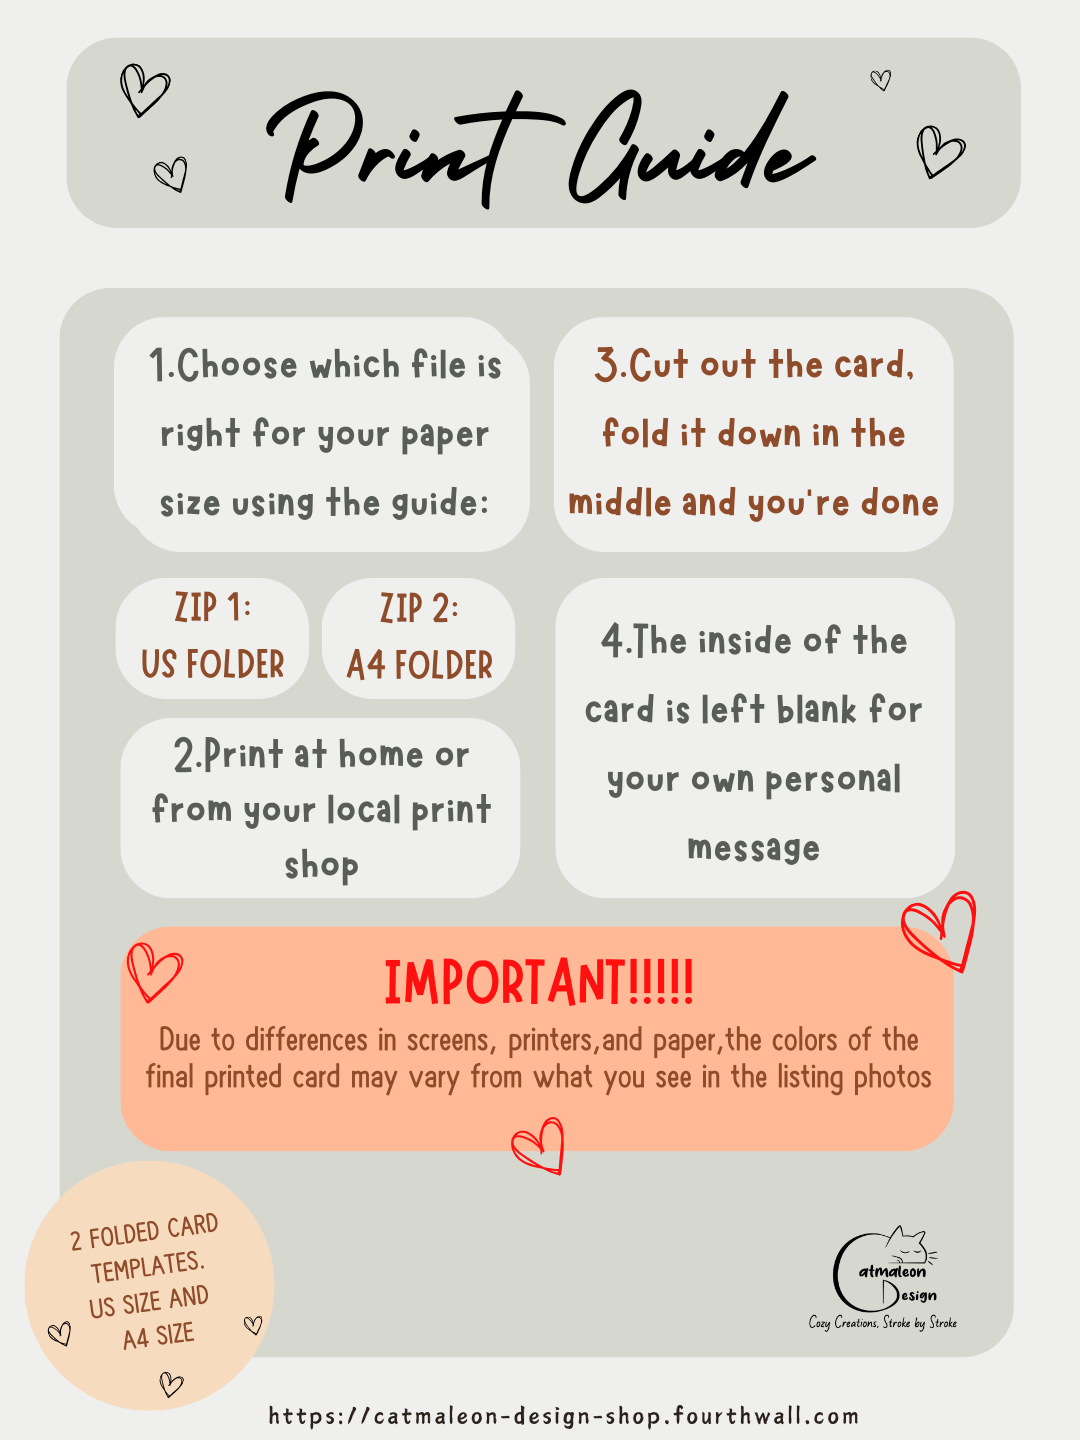 Print Guide
1.Choose which file is
right for your paper
size using the guide:
ZIP 1:
US FOLDER
ZIP 2:
A4 FOLDER
2.Print at home or
from your local print
shop
3.Cut out the card,
fold it down in the
middle and you're done
4.The inside of the
card is left blank for
your own personal
message
IMPORTANT!!!!!
Due to differences in screens, printers,and paper,the colors of the
final printed card may vary from what you see in the listing photos
2 FOLDED CARD
TEMPLATES.
US SIZE AND
A4 SIZE
Catmaleon
Design
Cozy Creations, Stroke by Stroke
https://catmaleon-design-shop.fourthwall.com